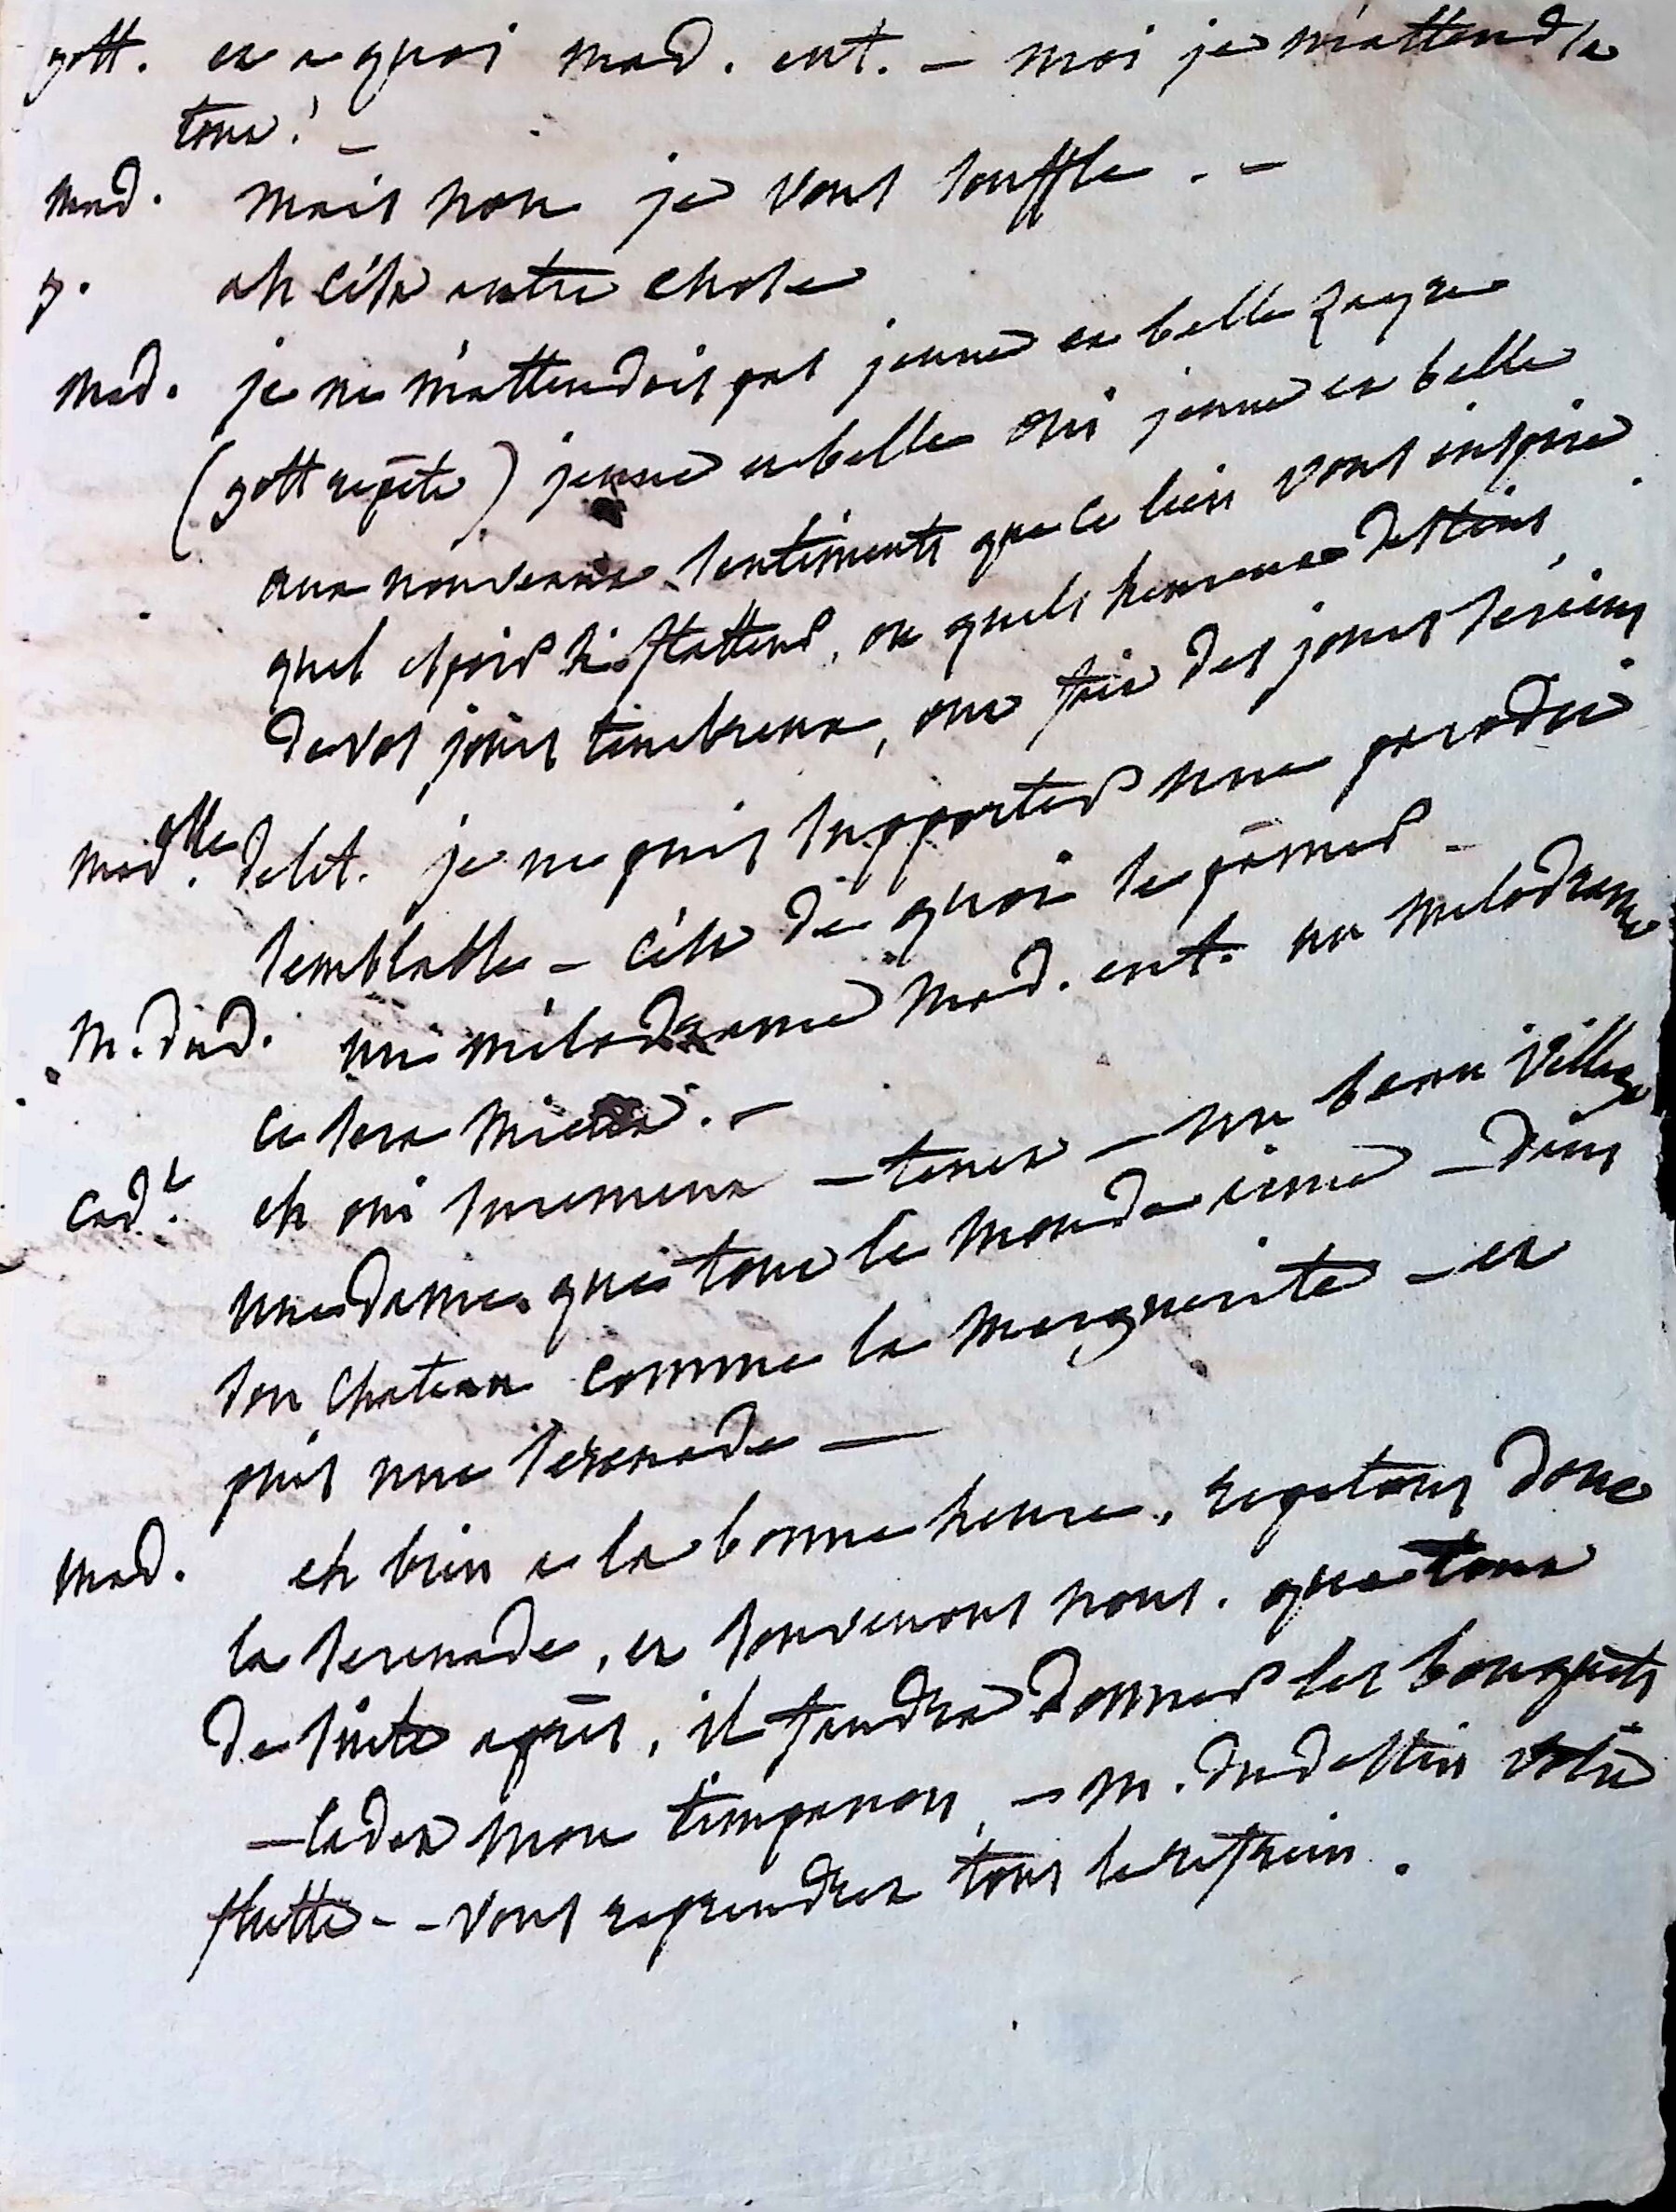 gott. et a quoi mad. ent. – moi je m'attend a
tout! –
mad. mais non je vous souffle . –
g. ah c'est autre chose
mad. je ne m'attendois pas jeune et belle zayre
(gott repète) jeune et belle oui jeune et belle
aux nouveaux sentiments que ce lieu vous inspire
quel espoir si flatteur, ou quels heureux destins
de vos jours tenebreux, ont fait des jours sereins
mad.elle delet. je ne puis supporter une parodie
semblable – c'est de quoi se pâmer –
M. dud. un mélodrame mad. ent. un melodrame
ce sera mieux. –
Cad.t eh oui surement – tenez – un beau village
une dame que tout le monde aime – dans
son chateau comme la marguerite – et
puis une serenade —
mad. eh bien a la bonne heure, repetons donc
la serenade, et souvenons nous. que tout
de suite après, il faudra donner les bouquets
– cadet mon timpanon, – M. dudestin votre
flutte - - vous reprendrez tous le refrain .